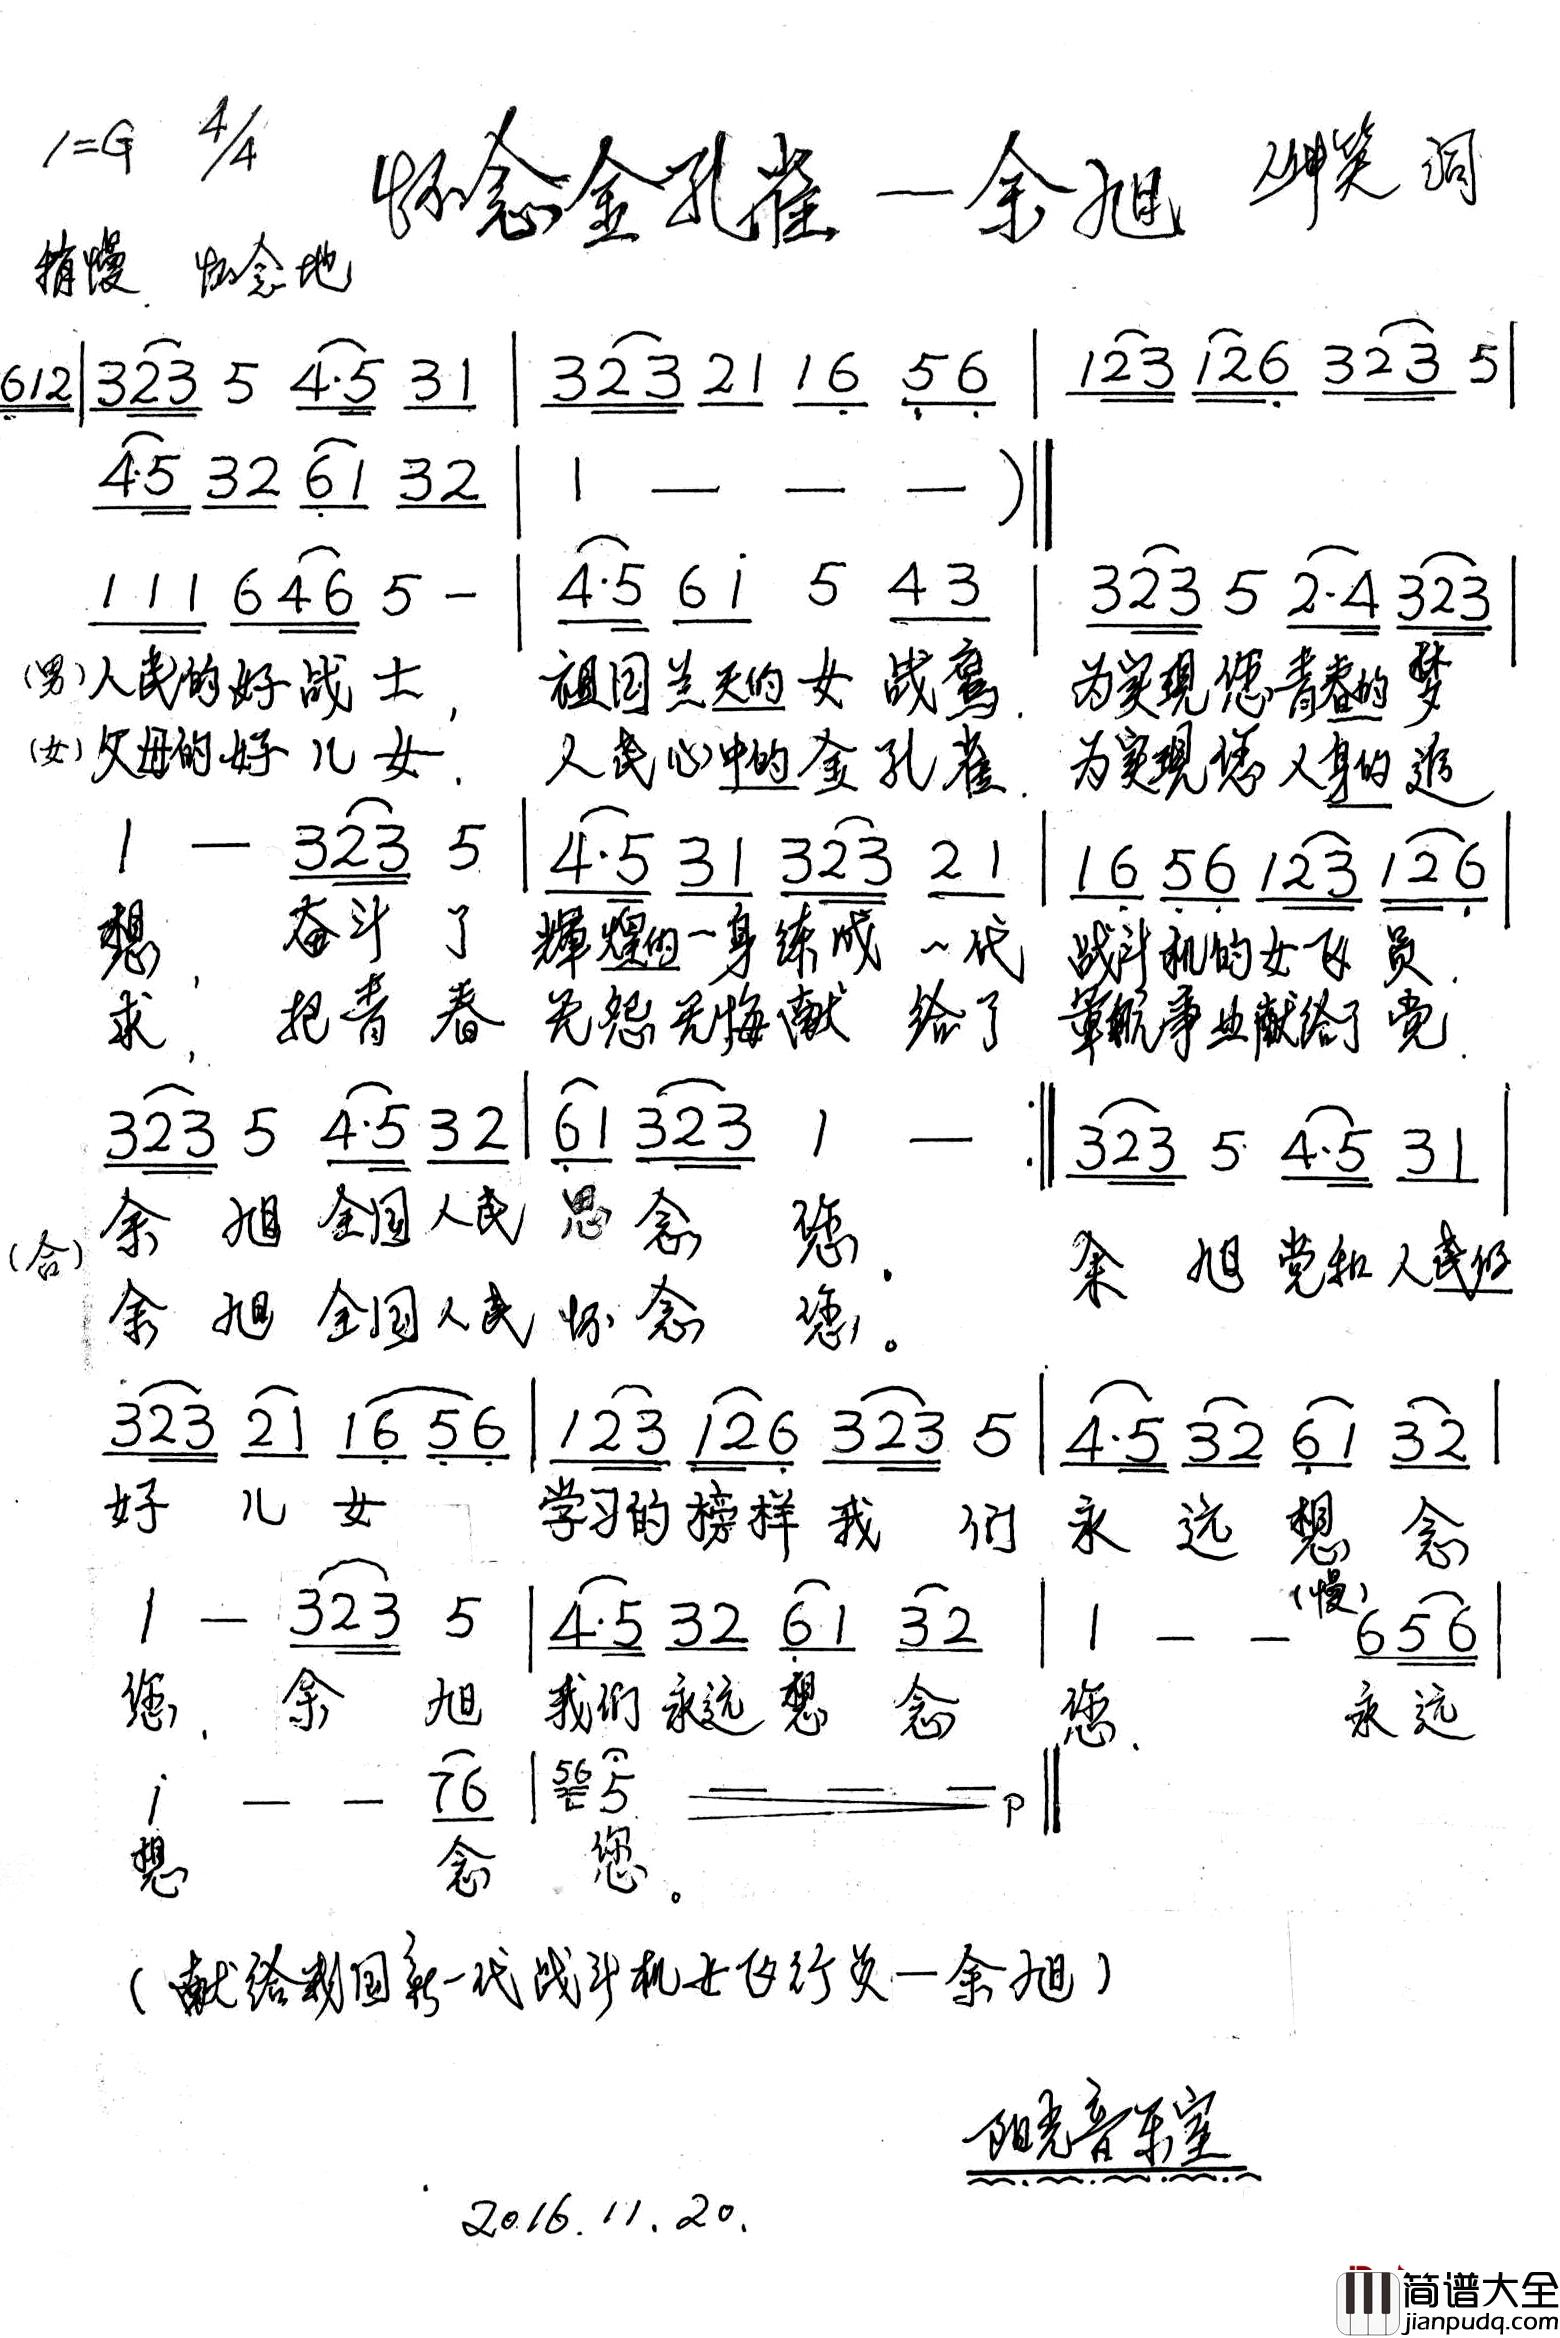 1=G 4/4
怀念金孔雀一余旭 笑 词
稍慢 怀念地
612|323 5 4·5 31|323 21 16 56|123 126 323 5|
4·5 32 61 32|1 — — —)‖
111 646 5 -|4·5 6i 5 43|323 5 2·4 323|
(男)人民的好战士, 祖国蓝天的女战鹰. 为实现您青春的梦
(女)父母的好儿女. 人民心中的金孔雀. 为实现您人身的追
1 — 323 5|4·5 31 323 21|16 56 123 126|
想, 奋斗了 辉煌的一身练成一代 战斗机的女飞员.
求, 把青春 无怨无悔献给了 軍航事业献给了党.
323 5 4·5 32|61 323 1 — :‖323 5· 4·5 31|
(合)余旭全国人民思念您. 余旭党和人民的
余旭全国人民怀念您。
323 21 16 56|123 126 323 5|4·5 32 61 32|
好儿女 学习的榜样我们永远想念
(慢)
1 — 323 5|4·5 32 61 32|1 — — 656|
您, 余旭 我们永远想念您. 永远
i — — 76|56 5 — — — p‖
想 念 您。
(献给我国新一代战斗机女飞行员一余旭)
阳光音乐室
2016.11.20.
简谱大全
jianpudq.com